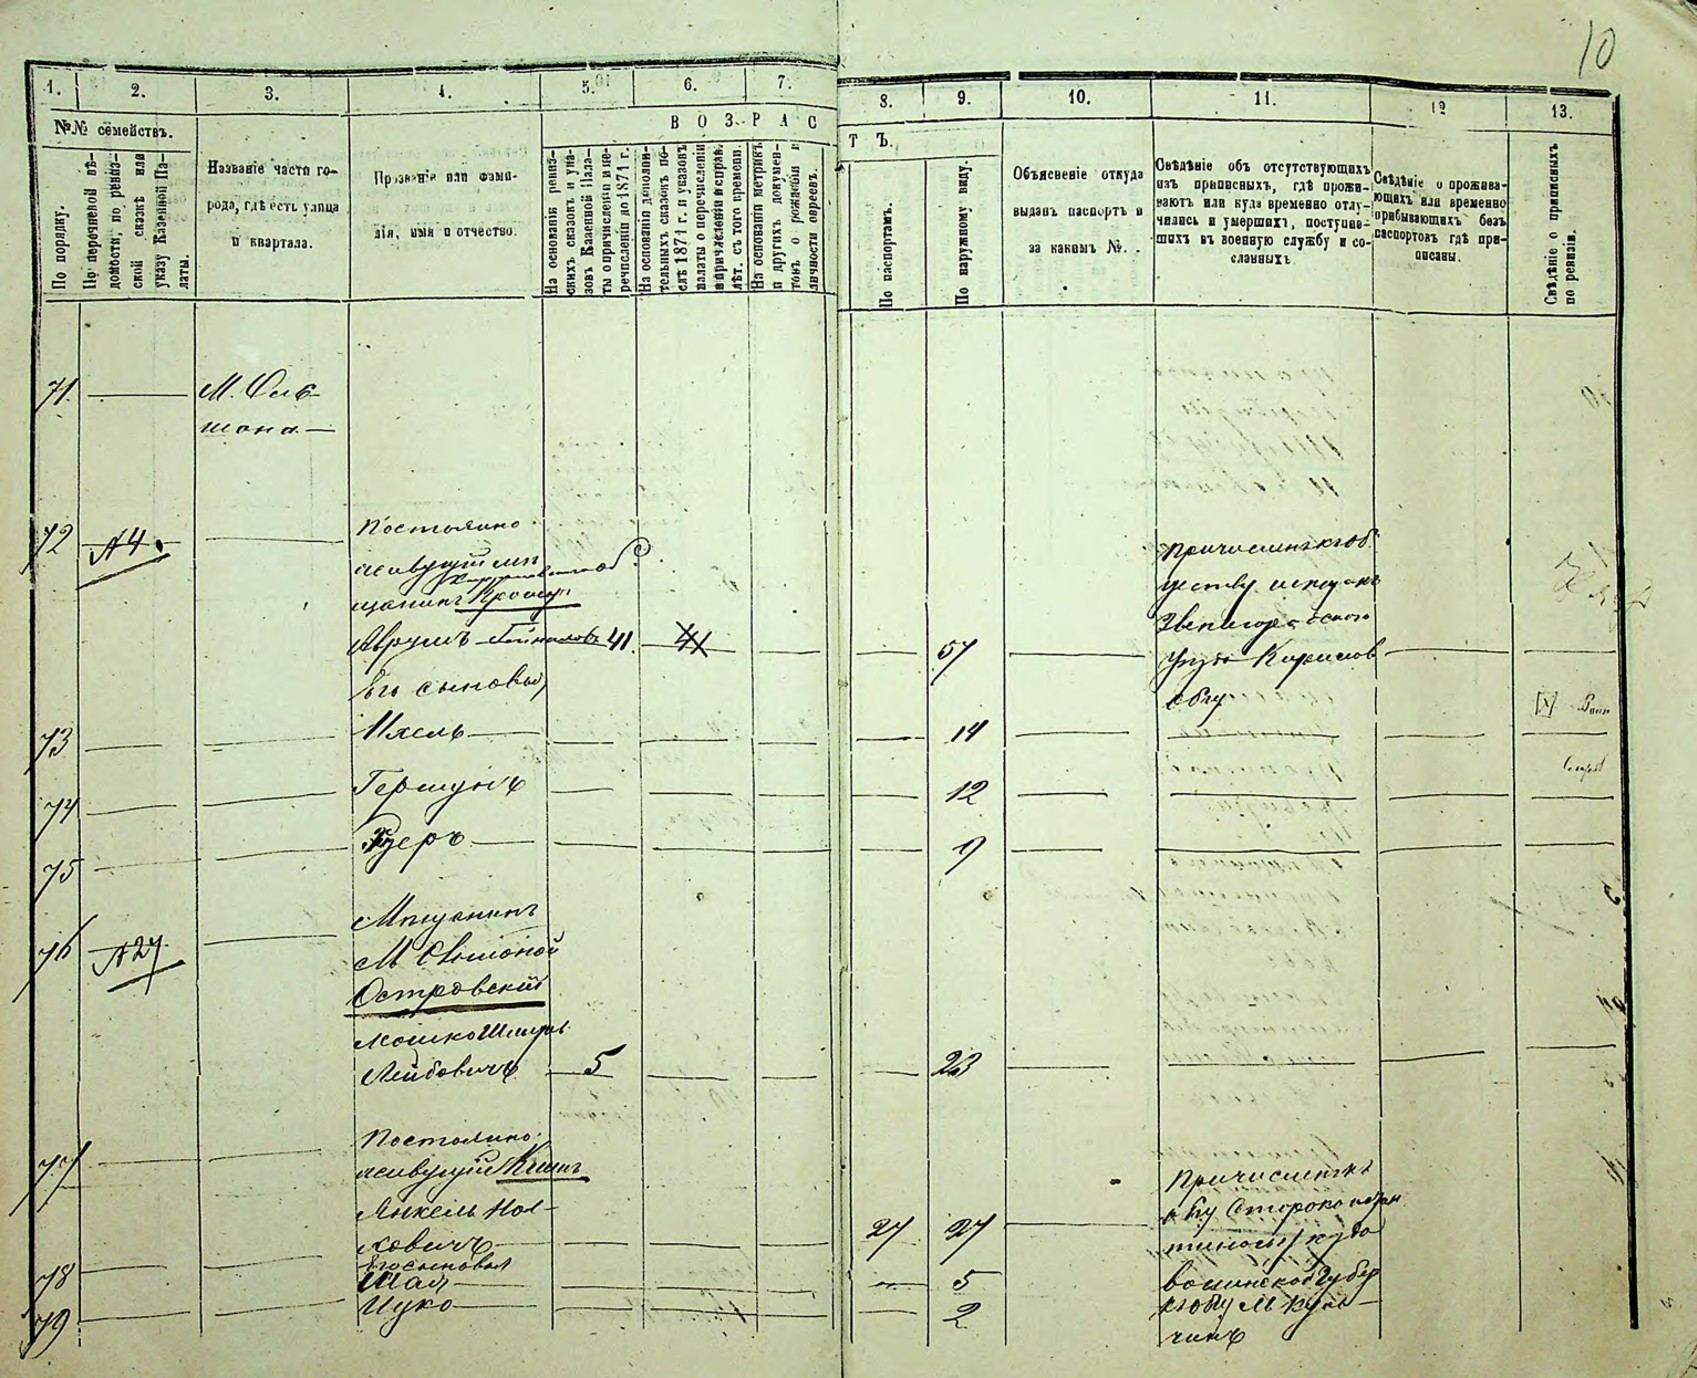 10
1. 2. 3. 4. 5. 6. 7. 8. 9. 10. 11. 12 13.
№№ семействъ.
В О З Р А С Т Ъ.
По порядку.
По перечневой вѣ-
домости, по ревиз-
ской сказкѣ или
указу Казенной Па-
латы.
Названіе части го-
рода, гдѣ есть улица
и квартала.
Прозваніе или фами-
лія, имя и отчество.
На основаніи ревиз-
скихъ сказокъ и ука-
зовъ Казенной Пала-
ты о причисленіи и пе-
речисленіи до 1871 г.
На основаніи дополни-
тельныхъ сказокъ по-
слѣ 1871 г. и указовъ
палаты о перечисленіи
и причисленіи и справ.
лѣт. съ того времени.
На основаніи метрикъ
и другихъ докумен-
товъ о рожденіи и
личности евреевъ.
По паспортамъ.
По наружному виду.
Объясненіе откуда
выданъ паспортъ и
за какимъ №.
Свѣдѣніе объ отсутствующихъ
изъ приписныхъ, гдѣ прожи-
ваютъ или куда временно отлу-
чились и умершихъ, поступив-
шихъ въ военную службу и со-
сланныхъ
Свѣдѣніе о прожива-
ющихъ или временно
прибывающихъ безъ
паспортовъ гдѣ при-
писаны.
Свѣдѣніе о приписныхъ
по ревизіи.
71. М. Оль
шана
72 №4.
Постоянно
живущій мѣ
щанинъ
Аврумъ 41. 41 57
Его сыновья,
Причисленъ къ об
ществу мѣщанъ
Звенигородскаго
уѣзда
обву
73 Ихель 14
74 Гершунъ 12
75 9
76 №27
Мѣщанинъ
М Ольшаной
Островскій
Мошко Шмуль
Лейбовичъ 5 23
77
Постоянно
живущій
Янкель
ковичъ 27 27
Его сыновья
78 Шая 5
79 Ицко 2
Причисленъ къ
обву Староконстан
тиновск уѣзда
волинской Губер
къ обву М Куль
чинъ